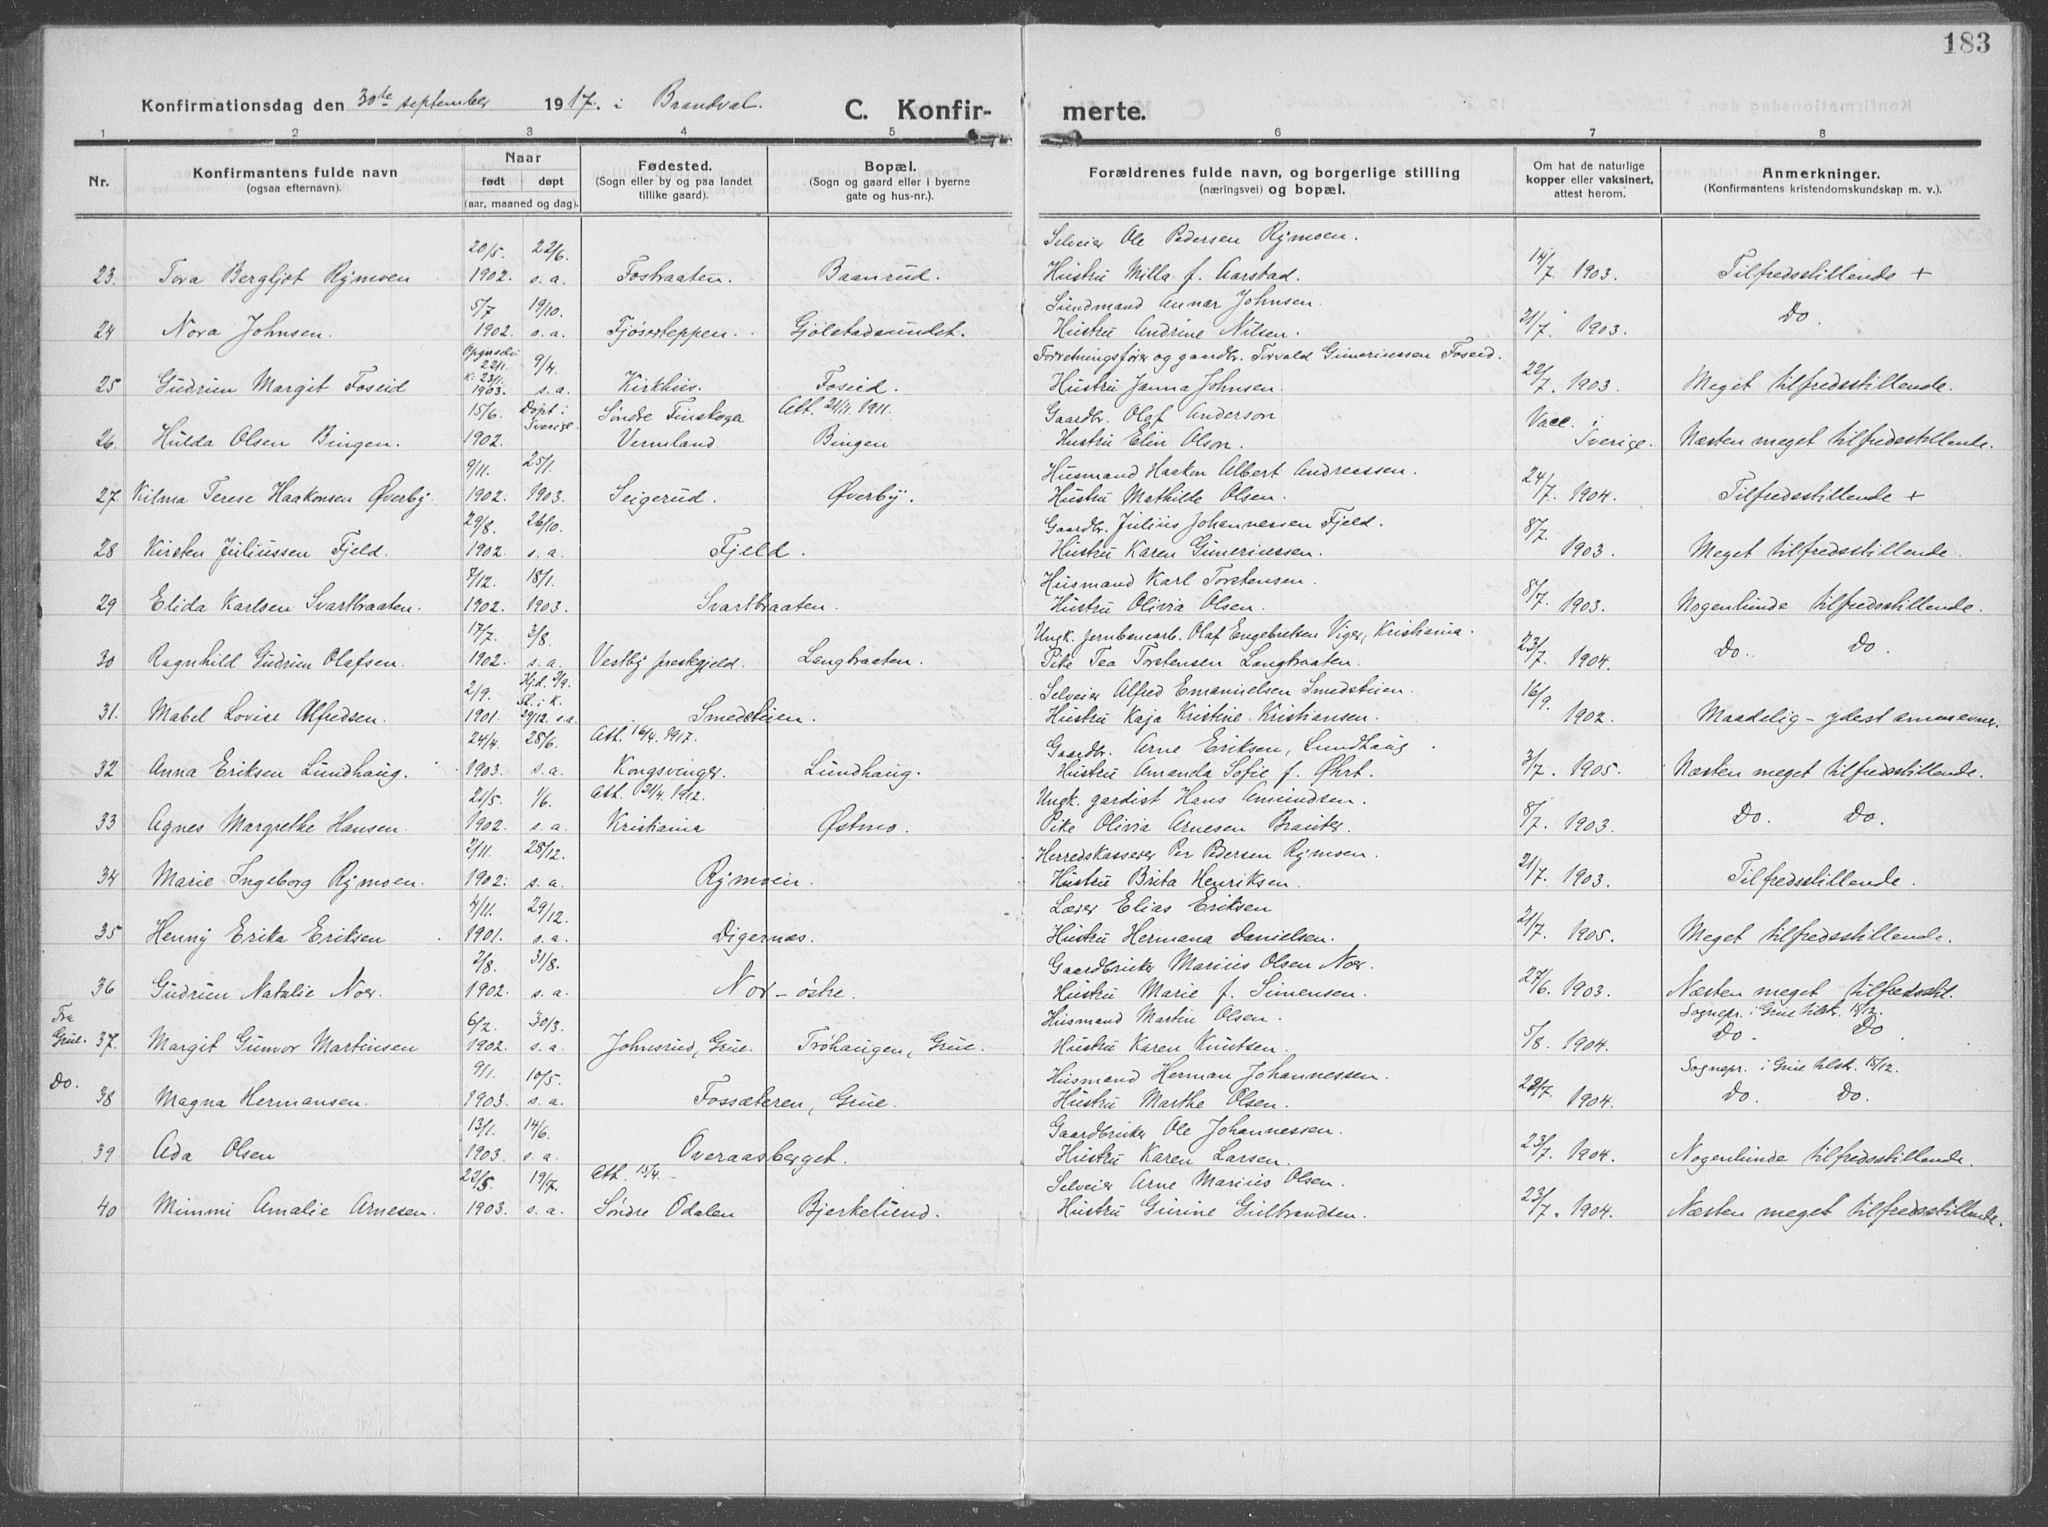 183
Konfirmationsdag den 30te september 1917. i Brandval. C. Konfirmerte.
1 2 3 4 5 6 7 8
Nr. Konfirmantens fulde navn (ogsaa efternavn). Naar født døpt (aar, maaned og dag). Fødested. (Sogn eller by og paa landet tillike gaard). Bopæl. (Sogn og gaard eller i byerne gate og hus-nr.). Forældrenes fulde navn, og borgerlige stilling (næringsvei) og bopæl. Om hat de naturlige kopper eller vaksinert, attest herom. Anmerkninger. (Konfirmantens kristendomskundskap m. v.).
20/5. 22/6. Selveier Ole Pedersen Rymoen.
23. Tora Bergljot Rymoen 1902. s. a. Fosbraaten. Baanrud. Hustru Milla f. Aarstad. 14/7. 1903. Tilfredsstillende +
5/7 19/10. Sundmand Annar Johnsen.
24 Nora Johnsen. 1902. s. a. Fjøserteppen. Gjølstadsundet. Hustru Andrine Nilsen. 21/7. 1903. Do.
22/1. 9/4. Forretningsfører og gaardbr. Torvald Gunerinssen Foseid.
25 Gudrun Margit Foseid K. 23/1. 1903. s. a. Kirkhus. Foseid. Hustru Janna Johnsen. 22/7. 1903. Meget tilfredsstillende.
15/6. Døpt i Sverige. Søndre Finskoga Att. 21/4. 1911. Gaardbr. Olof Anderson Vacc. i
26. Hulda Olsen Bingen. 1902. Vermland Bingen Hustru Elin Olson. Sverige. Næsten meget tilfredsstillende.
9/11. 25/1. Husmand Haakon Albert Andreassen.
27. Kitma Terese Haakonsen Øverby 1902. 1903. Seigerud. Øverby. Hustru Mathilde Olsen. 24/7. 1904. Tilfredsstillende +
29/8. 26/10. Gaardbr. Julius Johannessen Fjeld.
28 Kirsten Juliussen Fjeld. 1902. s. a. Fjeld. Hustru Karen Gunerinssen. 8/7. 1903. Meget tilfredsstillende.
7/12. 18/1. Husmand Karl Torstensen.
29 Elida Karlsen Svartbraaten. 1902. 1903. Svartbraaten. Hustru Olivia Olsen. 8/7. 1903. Nogenlunde tilfredsstillende.
17/7. 3/8. Ungk. jernbanearb. Olaf Engebretsen Viger, Kristiania.
30 Ragnhild Gudrun Olafsen. 1902. s. a. Vestby prestegjeld. Langbraaten. Pike Tea Torstensen Langbraaten. 23/7. 1904. Do. Do.
2/9. Hjd. 9/9. St. i K. Selveier Alfred Emanuelsen Smedstuen.
31. Mabel Lovise Alfredsen. 1901. 29/12. s. a. Smedstuen. Hustru Kaja Kristine Kristiansen. 16/9. 1902. Maadelig - ydest smaaevner
24/4. 28/6. Att. 16/4. 1917. Gaardbr. Arne Eriksen, Lundhaug.
32 Anna Eriksen Lundhaug. 1903. s. a. Kongsvinger. Lundhaug. Hustru Amanda Sofie f. Øhrt. 3/7. 1905. Næsten meget tilfredsstillende.
21/5. 1/6. Att. 21/4. 1912. Ungk. gardist Hans Amundsen.
33 Agnes Margrethe Hansen. 1902. s. a. Kristiania Østmo. Pike Olivia Arnesen Brauter. 8/7. 1903. Do. Do.
2/11. 28/12. Herredskasserer Per Pedersen Rymoen.
34 Marie Ingeborg Rymoen. 1902. s. a. Rymoen. Hustru Brita Henriksen. 21/7. 1903. Tilfredsstillende.
4/11. 29/12. Lærer Elias Eriksen
35 Henny Erika Eriksen 1901. s. a. Digernæs. Hustru Hermana Danielsen. 21/7. 1905. Meget tilfredsstillende.
2/8. 31/8. Gaardbruker Marius Olsen Nor.
36 Gudrun Natalie Nor. 1902. s. a. Nor - østre. Hustru Marie f. Simensen. 27/6. 1903. Næsten meget tilfredsst.
Fra 6/2. 30/3. Husmand Martin Olsen. Sognepr. i Grue tilst. 15/12.
Grue. 37. Margit Gunvor Martinsen 1902. s. a. Johnsrud, Grue. Trøhaugen, Grue. Hustru Karen Knutsen. 5/8. 1904. Do. Do
Do. 9/1. 10/5. Husmand Herman Johannessen. Sognepr. i Grue tilst. 15/12.
38 Magna Hermansen. 1903. s. a. Fossæteren, Grue. Hustru Marthe Olsen. 22/7. 1904. Do. Do.
13/1. 14/6. Gaardbruker Ole Johannessen.
39 Ada Olsen 1903. s. a. Overaasberget. Hustru Karen Larsen. 23/7. 1904. Nogenlunde tilfredsstillende.
22/5. 19/7. Att. 15/4. - Selveier Arne Marius Olsen.
40 Mimmi Amalie Arnesen. 1903. s. a. Søndre Odalen Bjerkelund. Hustru Gurine Gulbrandsen. 23/7. 1904. Næsten meget tilfredsstillende.